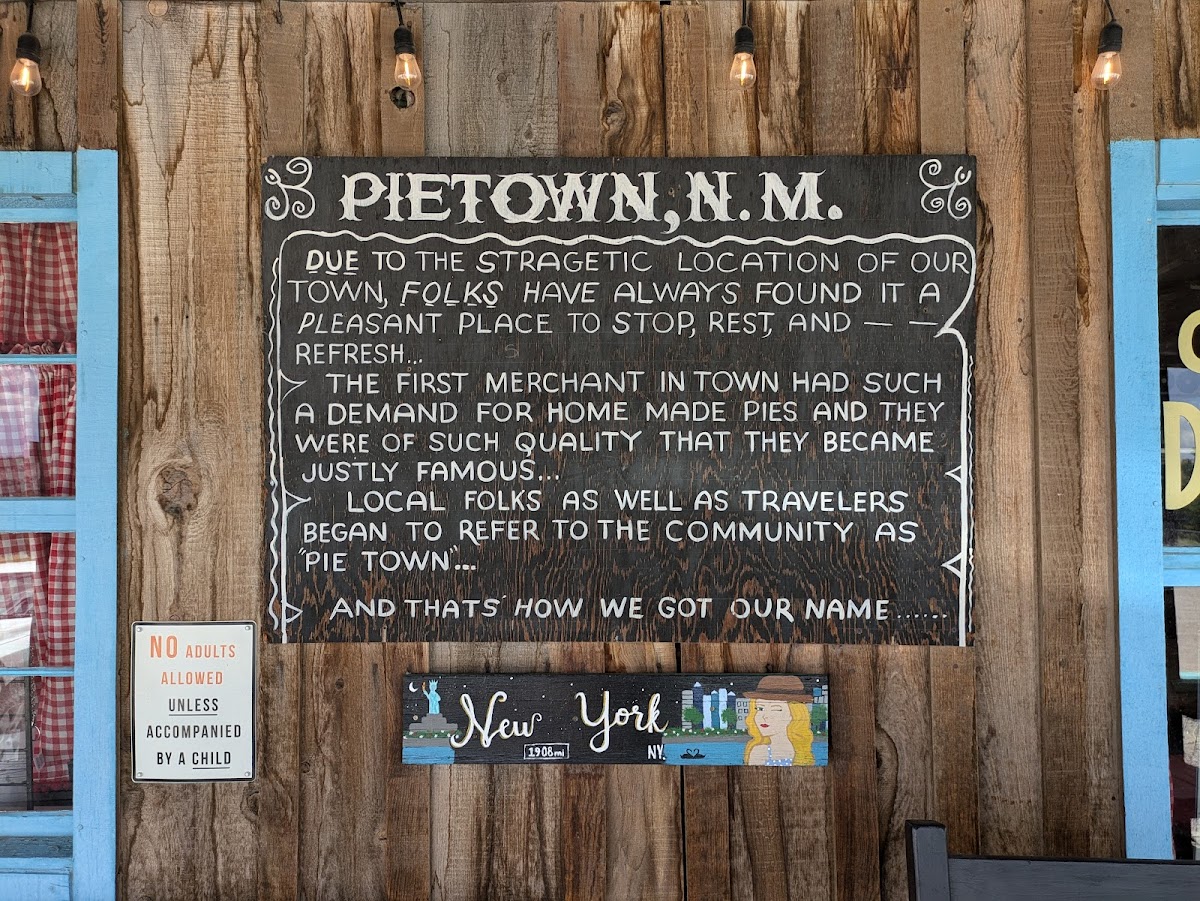 PIETOWN, N.M.
DUE TO THE STRAGETIC LOCATION OF OUR
TOWN, FOLKS HAVE ALWAYS FOUND IT A
PLEASANT PLACE TO STOP, REST, AND — —
REFRESH...
THE FIRST MERCHANT IN TOWN HAD SUCH
A DEMAND FOR HOME MADE PIES AND THEY
WERE OF SUCH QUALITY THAT THEY BECAME
JUSTLY FAMOUS...
LOCAL FOLKS AS WELL AS TRAVELERS
BEGAN TO REFER TO THE COMMUNITY AS
"PIE TOWN"...
AND THATS' HOW WE GOT OUR NAME......
NO ADULTS
ALLOWED
UNLESS
ACCOMPANIED
BY A CHILD
New York
1908mi
NY.